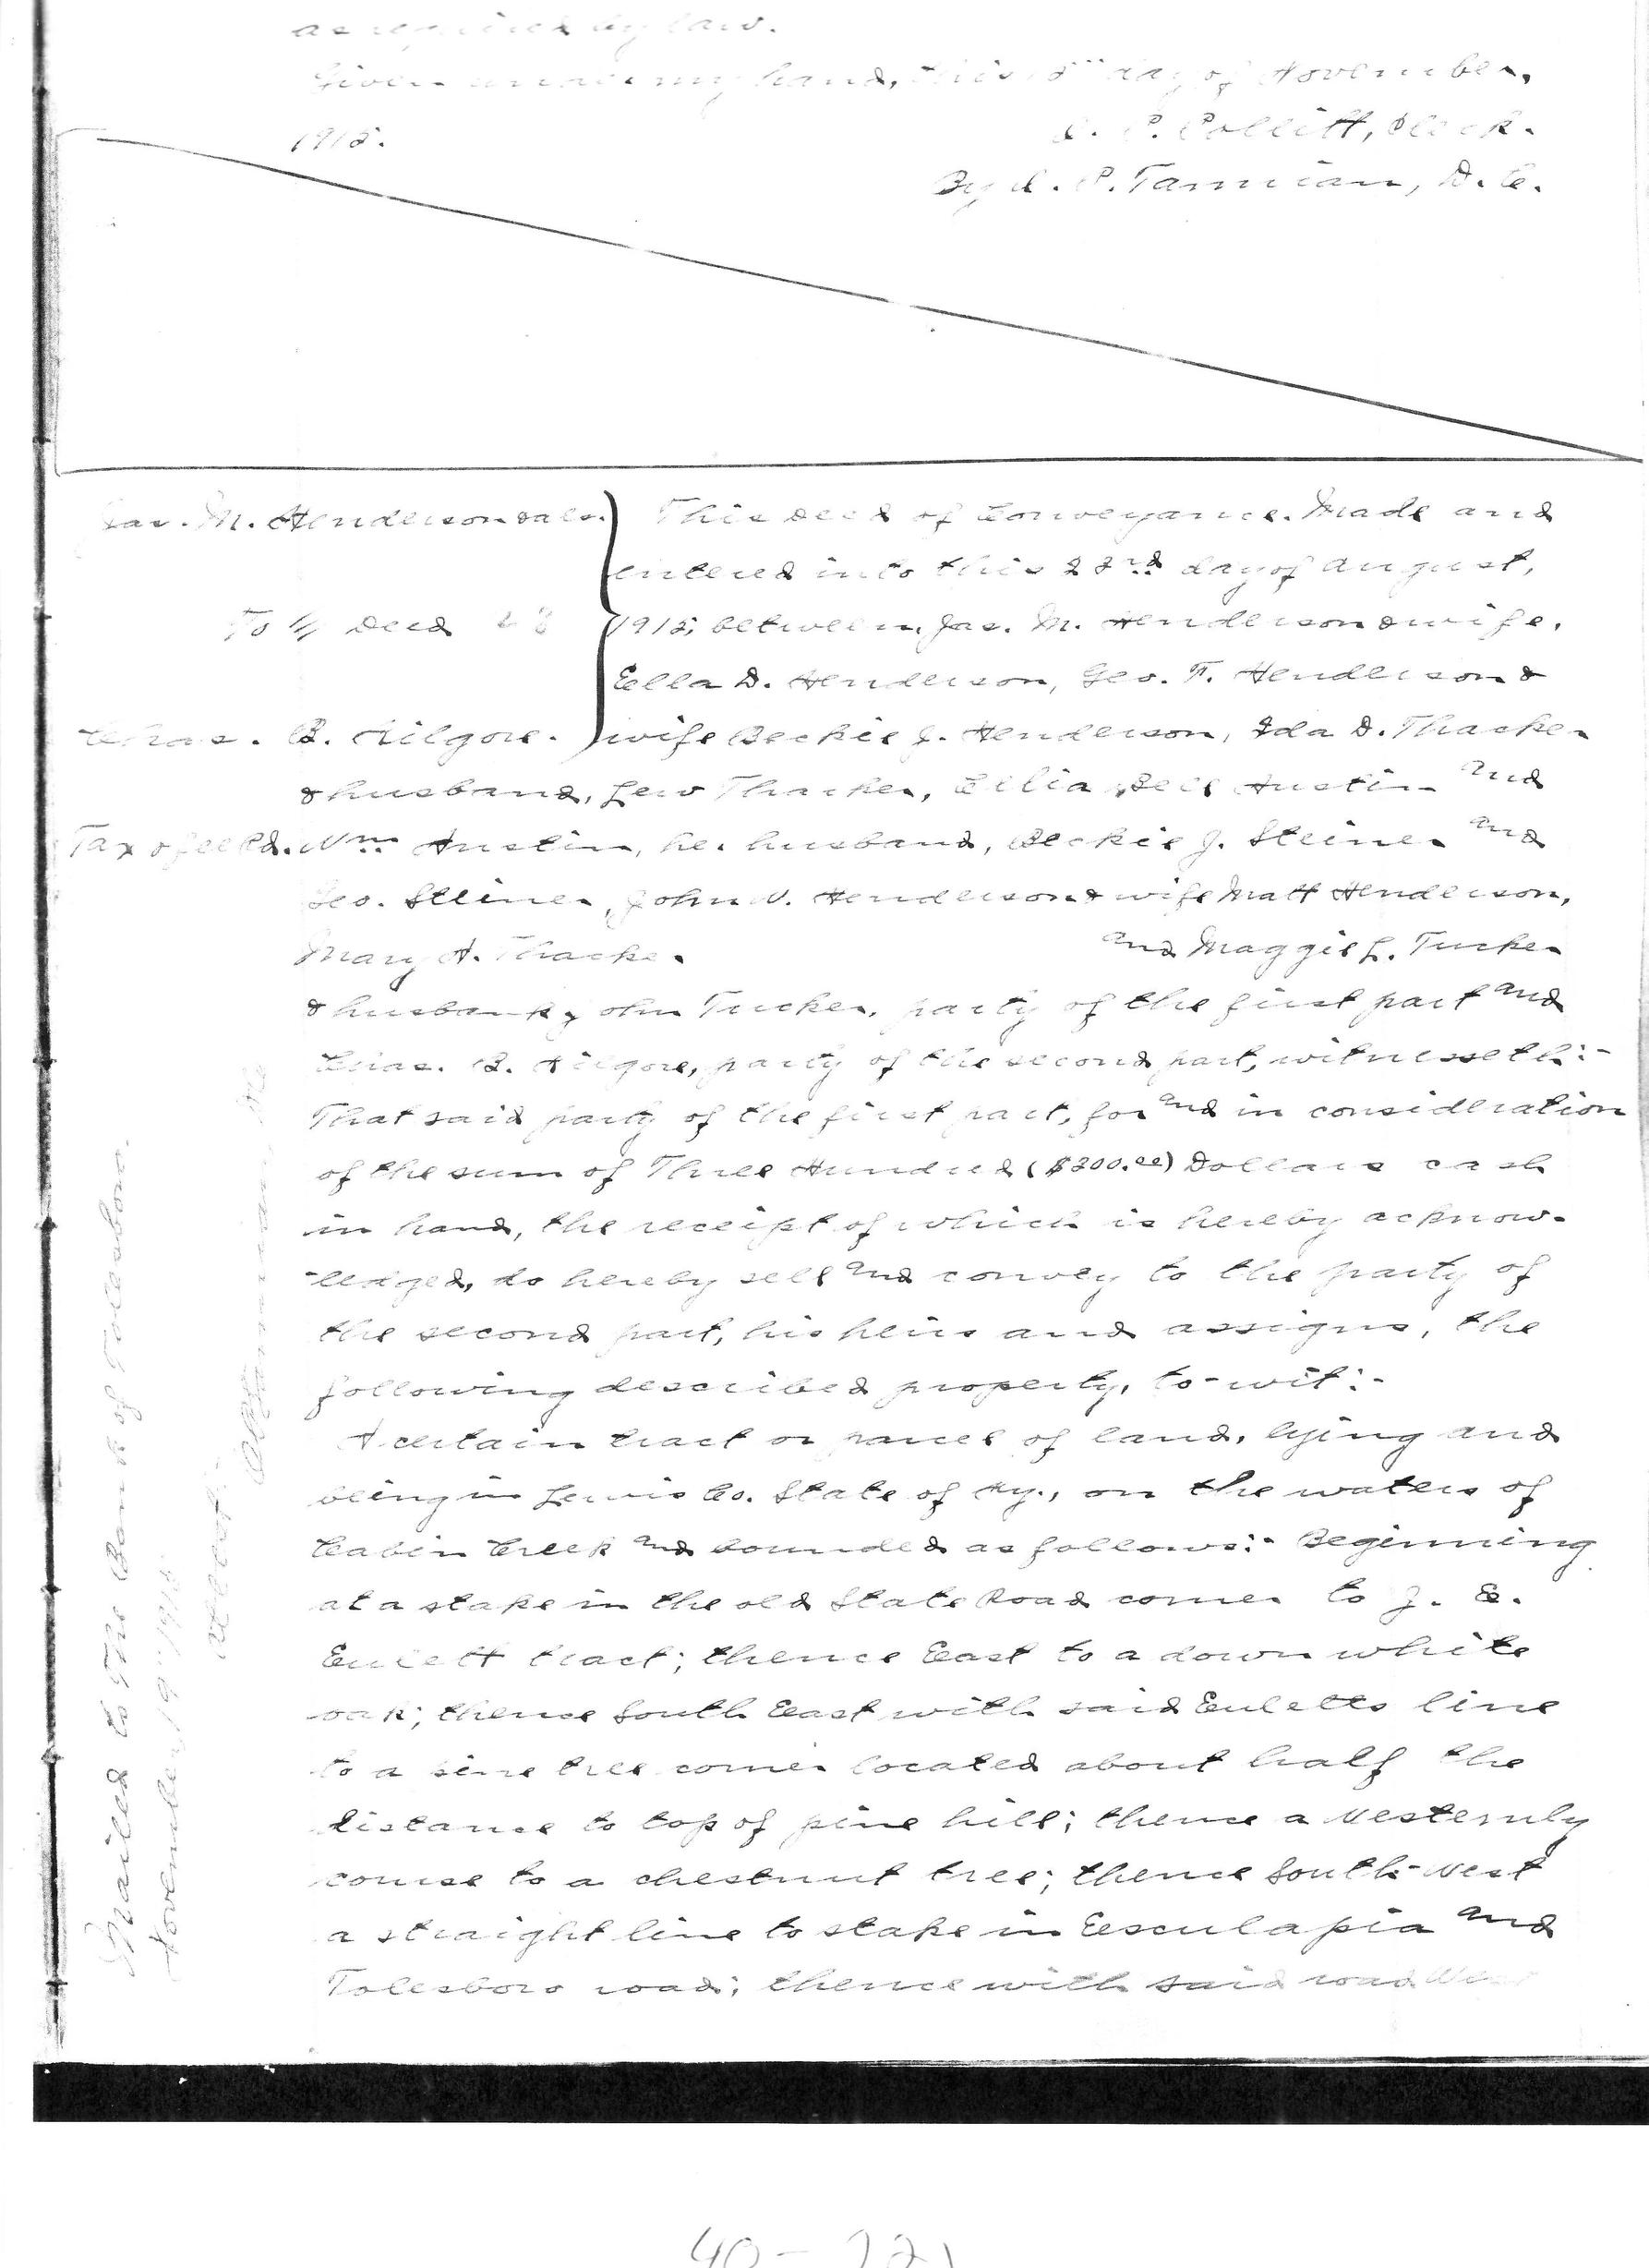 as required by law.
Given under my hand, this day of November,
1912.
Collitt, Clerk.
By P. Tannian, D. C.
Jas. M. Henderson & als.
To // Deed
Chas. B. Kilgore.
Tax & fee Pd.
This Deed of Conveyance. Made and
entered into this 23rd day of August,
1912, between, Jas. M. Henderson & wife,
Ella D. Henderson, Geo. F. Henderson &
wife Beckie J. Henderson, Ida D. Thacker
& husband, Lew Thacker, Bell Austin and
Wm Austin, her husband, Beckie J. Steiner and
Geo. Steiner, John V. Henderson & wife Matt Henderson,
Mary A. Thacker and Maggie L. Tucker
& husband, John Tucker, party of the first part and
Chas. B. Kilgore, party of the second part, witnesseth:-
That said party of the first part, for and in consideration
of the sum of Three Hundred ($300.00) Dollars cash
in hand, the receipt of which is hereby acknow-
-ledged, do hereby sell and convey to the party of
the second part, his heirs and assigns, the
following described property, to-wit:-
A certain tract or parcel of land, lying and
being in Lewis Co. State of Ky., on the waters of
Cabin Creek and bounded as follows:- Beginning
at a stake in the old State Road corner to J. E.
Eulett tract; thence East to a down white
oak; thence South East with said Euletts line
to a pine tree corner located about half the
distance to top of pine hill; thence a Westernly
course to a chestnut tree; thence South-West
a straight line to stake in Esculapia and
Tolesboro road; thence with said road West
Mailed to The Bank of Tolesboro.
November 1912.
Attest:
40-721